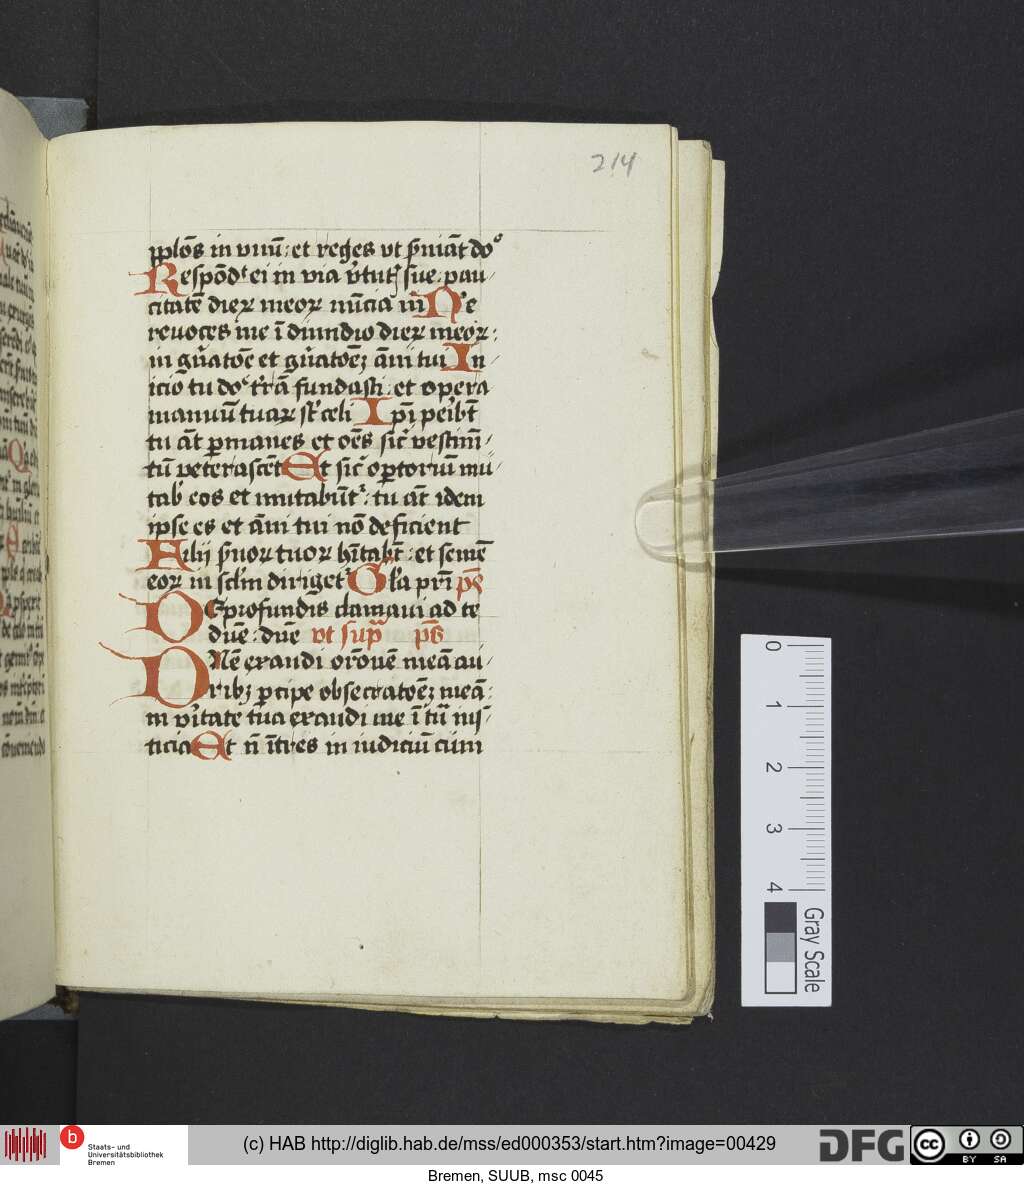 214
pplōs in vnū: et reges vt s̄uiāt do°
Respōdᵗ ei in via v̓tutꝭ sue: pau-
citatē dieꝝ meoꝝ nūcia m̄ Ne
reuoces me ī dimidio dieꝝ meoꝝ:
in gn̄atōe et gn̄atōeꝫ ām tui In
icio tu doᵉ t̓rā fundasti: et opera
manuū tuaꝝ sᵗ celi Ip̄i peibt̄
tu āt ꝑmanes et oēs sic̓ vestim̄-
tū veterascēt Et sic̓ oꝑtoriū mu-
tab̓ eos et mutabūtᷣ: tu āt idem
ipse es et āni tui nō deficient
Filij s̄uoꝝ tuoꝝ hītabt̄: et semē
eoꝝ in sclm dirigetᷣ Gl̓a pr̄i pꝰ
DE profundis clamaui ad te
dn̄e: dn̄e vt sup̄ pꝰ
DNē exaudi orōnē meā au-
ribꝫ ꝑcipe obsecratōeꝫ meā:
in v̓itate tua exaudi me ī tu iuſ-
ticia Et n̄ ītres in iudiciū cum
0
1
2
3
4
Gray Scale
b
Staats- und
Universitätsbibliothek
Bremen
(c) HAB http://diglib.hab.de/mss/ed000353/start.htm?image=00429
DFG
cc
BY SA
Bremen, SUUB, msc 0045